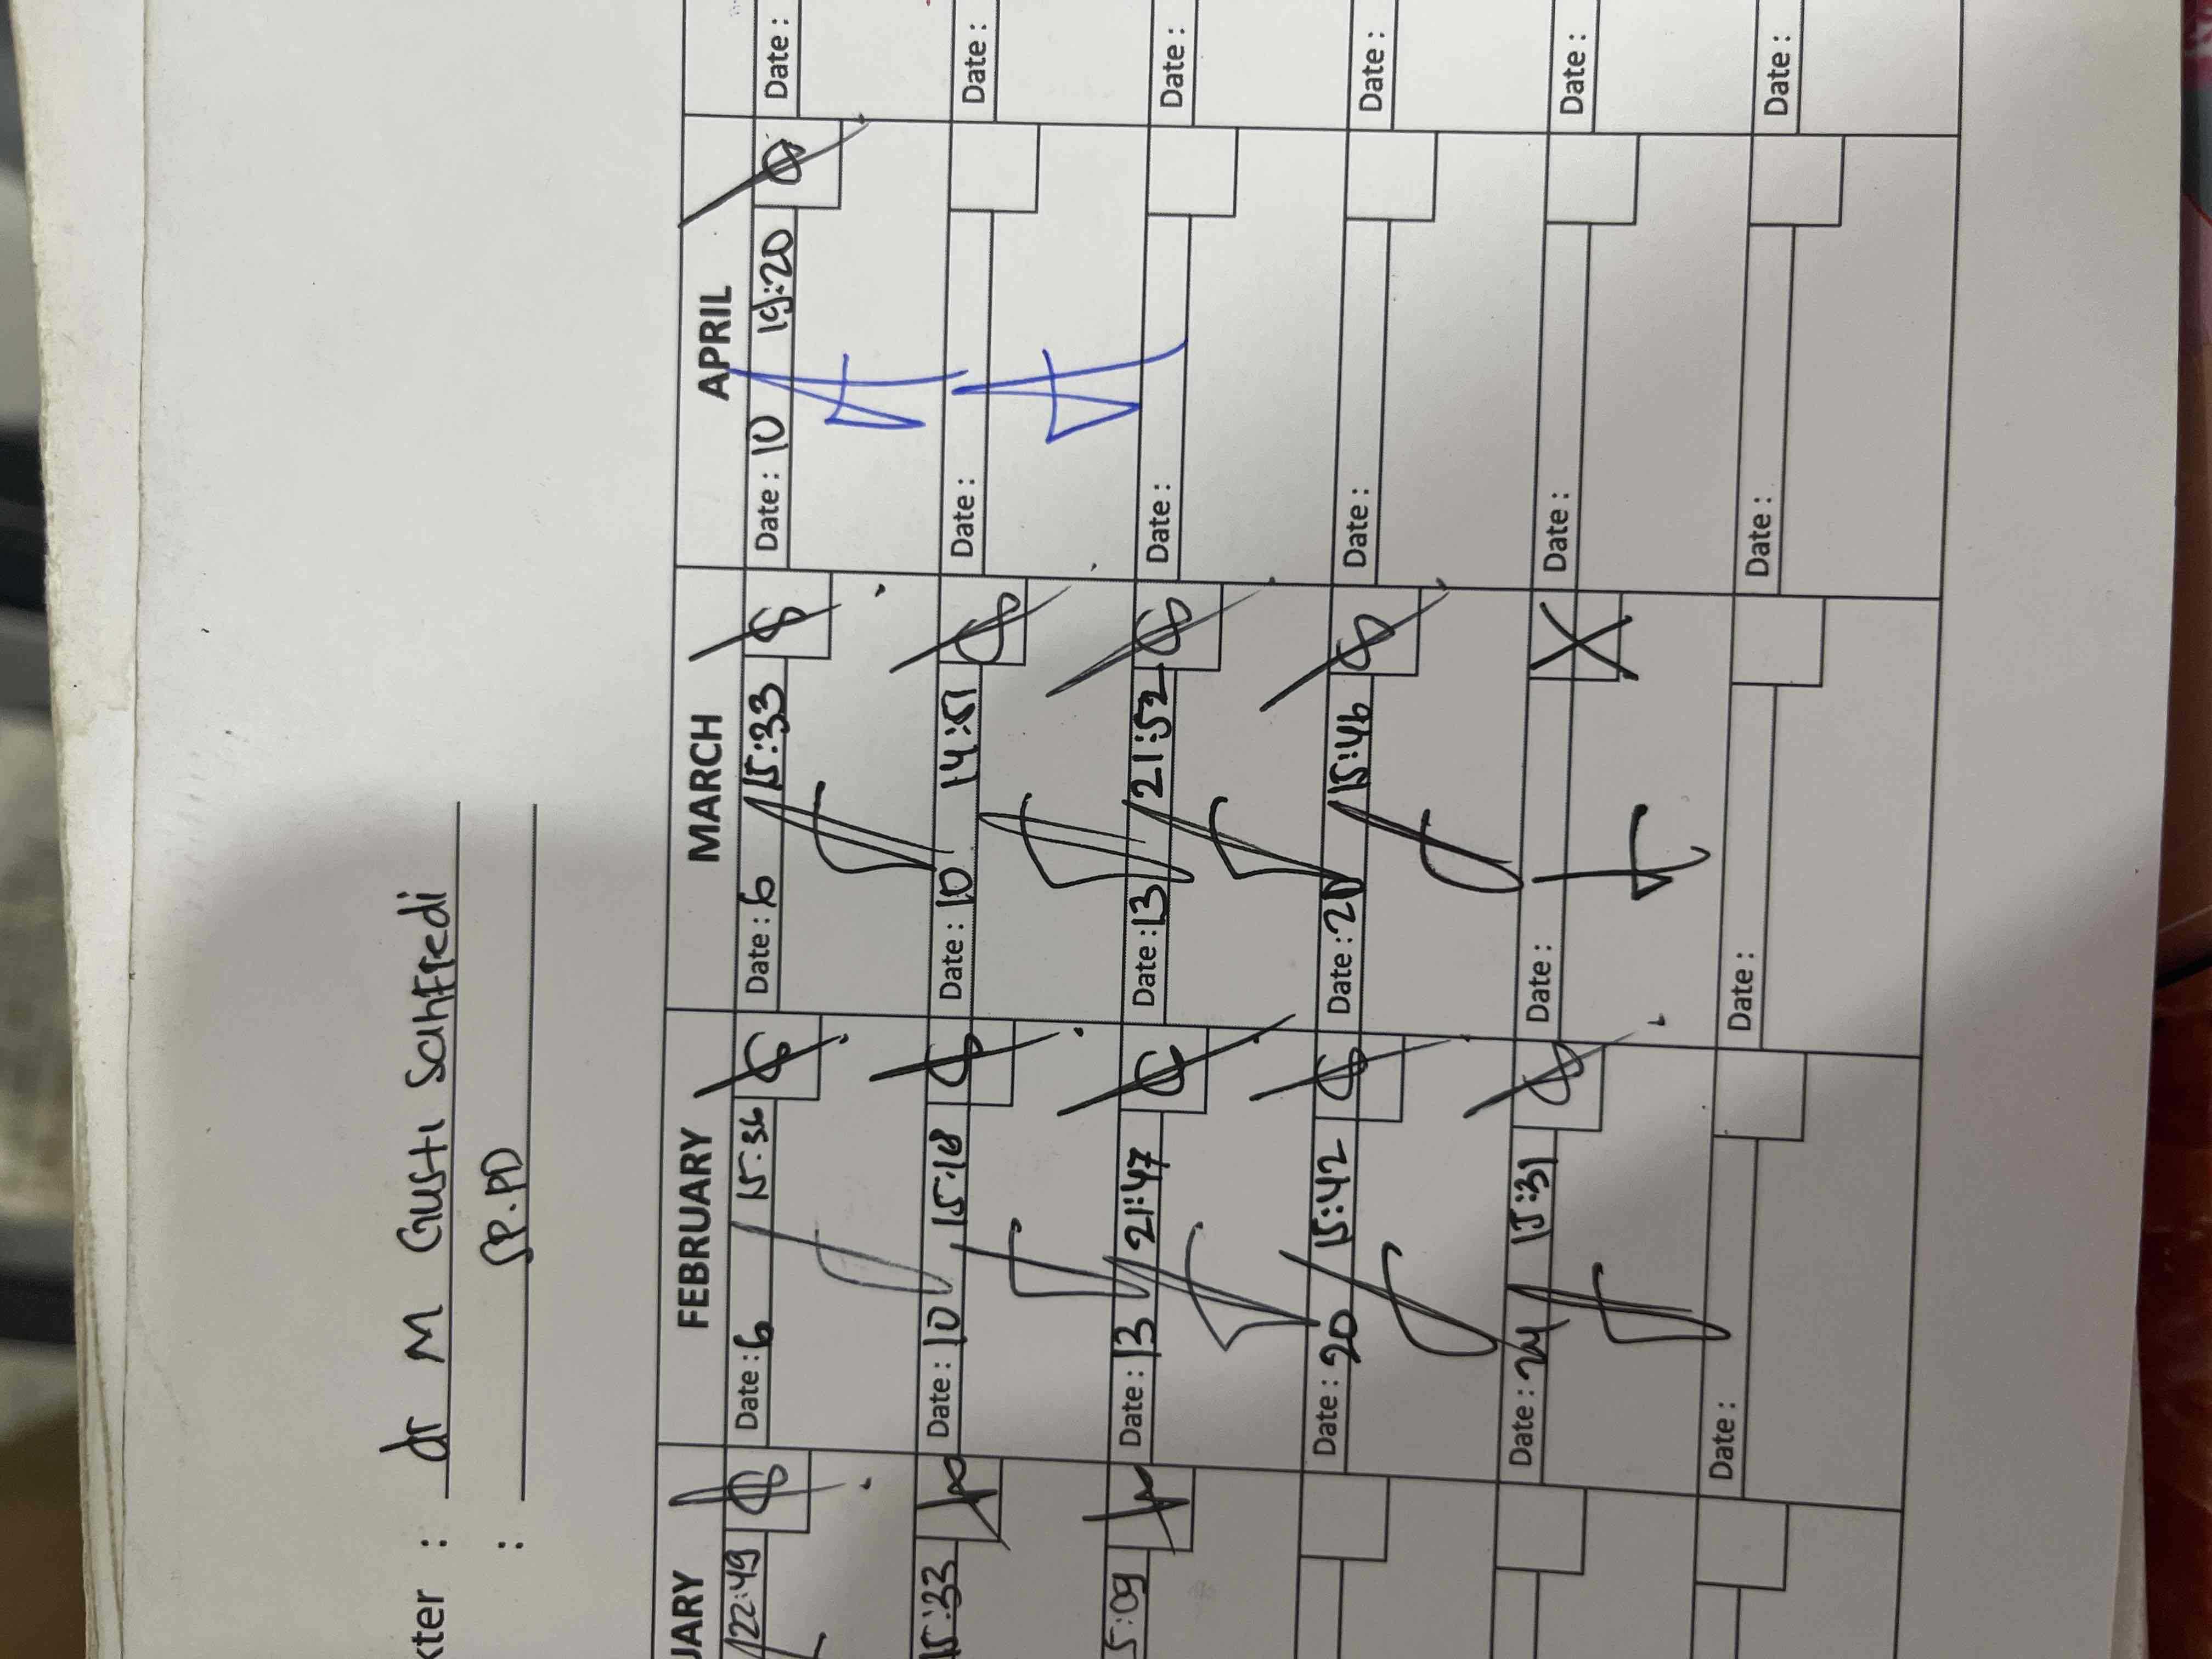 kter : dr M Gusti Sahffedi
: SP.PD
UARY FEBRUARY MARCH APRIL
22:49 Date : 6 15:36 Date : 6 15:33 Date : 10 19:20 Date :
15:33 Date : 10 15:18 Date : 10 14:51 Date : Date :
5:09 Date : 13 21:47 Date : 13 21:52 Date : Date :
Date : 20 15:42 Date : 20 15:46 Date : Date :
Date : 24 15:31 Date : Date : Date :
Date : Date : Date : Date :